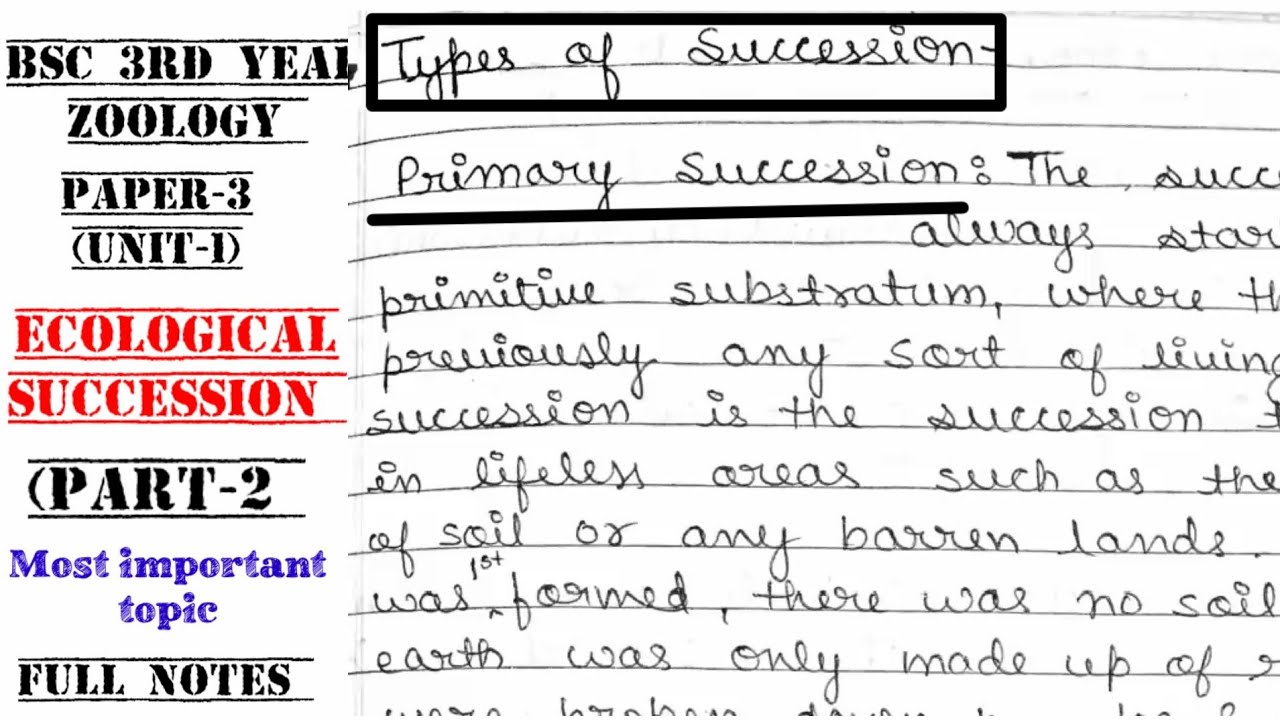 BSC 3RD YEAR
ZOOLOGY
PAPER-3
(UNIT-1)
ECOLOGICAL
SUCCESSION
(PART-2
Most important
topic
FULL NOTES
Types of Succession-
Primary Succession: The succ
always star
primitive substratum, where th
previously any sort of living
succession is the succession
in lifeless areas such as the
of soil or any barren lands.
was 1st formed, there was no soil
earth was only made up of
were broken down